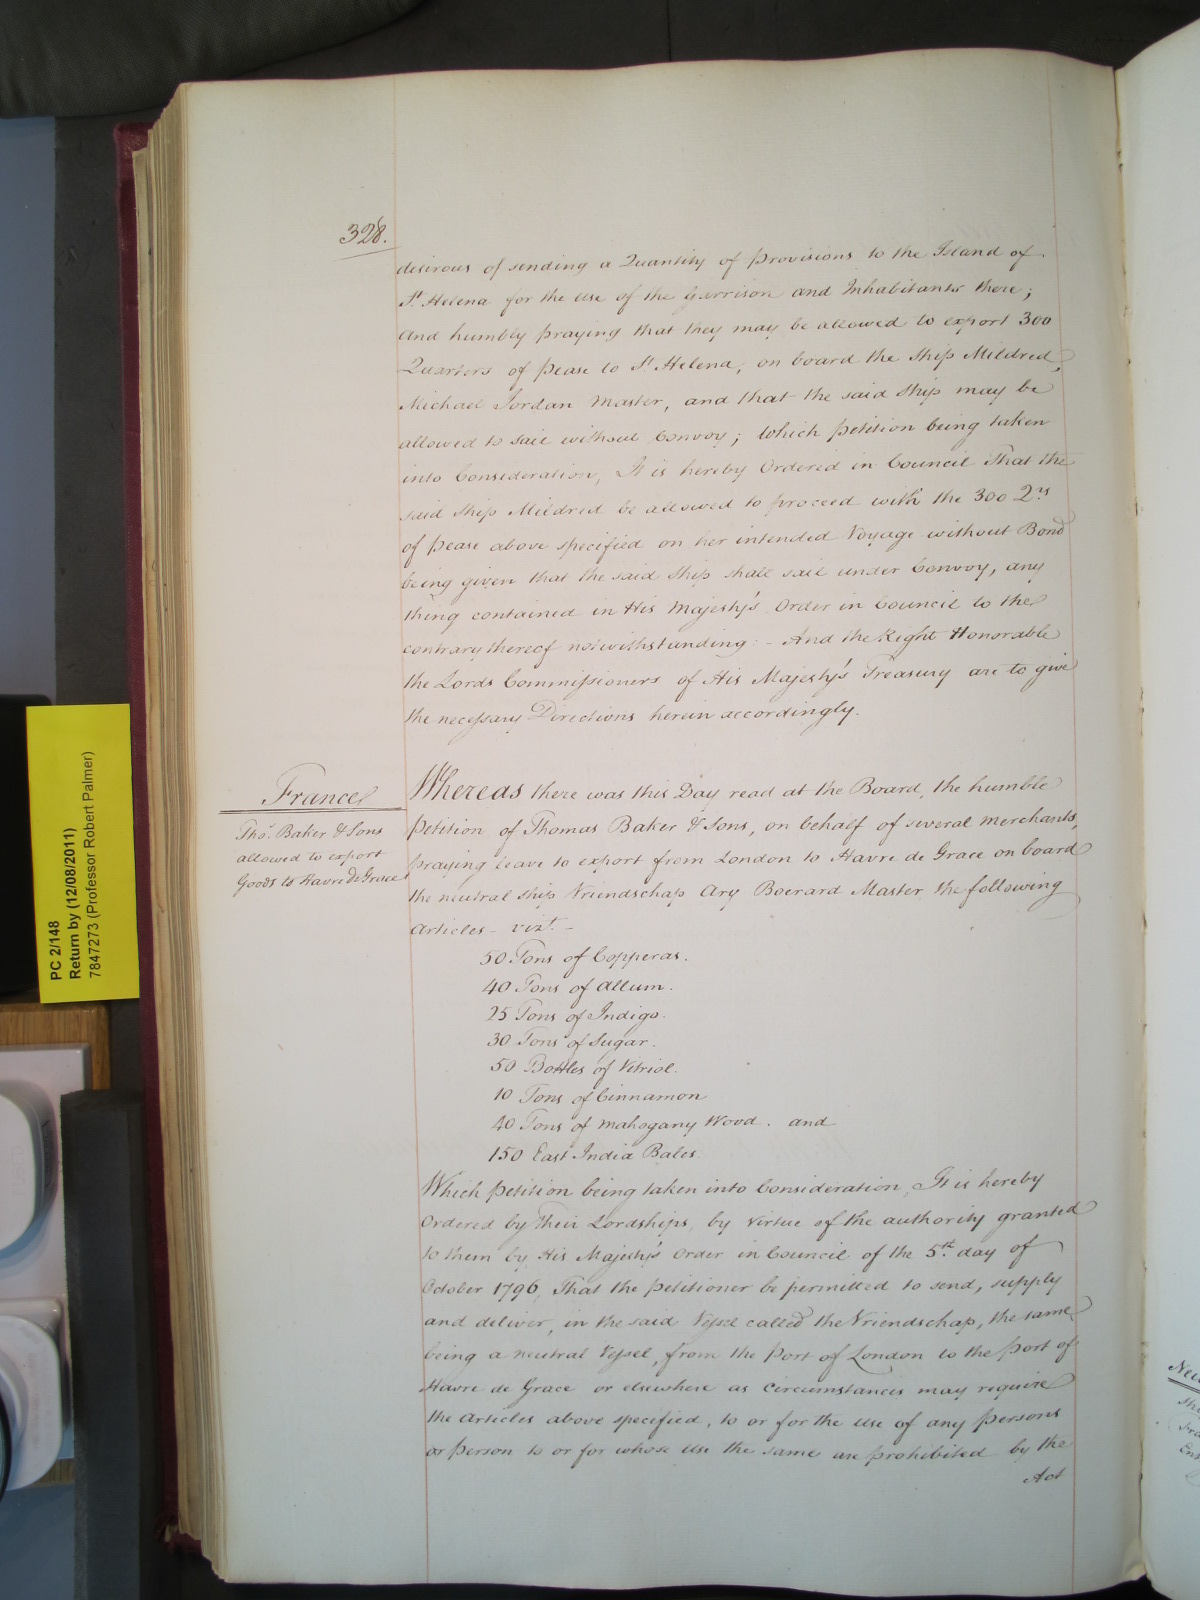 328.
desirous of sending a Quantity of provisions to the Island of
St. Helena for the use of the Garrison and Inhabitants there;
and humbly praying that they may be allowed to export 300
Quarters of pease to St. Helena, on board the Ship Mildred,
Michael Jordan Master, and that the said Ship may be
allowed to sail without Convoy; Which petition being taken
into Consideration, It is hereby Ordered in Council That the
said Ship Mildred be allowed to proceed with the 300 Qrs
of pease above specified on her intended Voyage without Bond
being given that the said Ship shall sail under Convoy, any
thing contained in His Majesty's Order in Council to the
contrary thereof notwithstanding: - And the Right Honorable
the Lords Commissioners of His Majesty's Treasury are to give
the necessary Directions herein accordingly.
France
Thos. Baker & Sons
allowed to export
Goods to Havre de Grace
Whereas there was this Day read at the Board, the humble
petition of Thomas Baker & Sons, on behalf of several Merchants,
praying leave to export from London to Havre de Grace on board
the neutral Ship Vriendschap Ary Boerard Master the following
Articles - vizt. -
50 Tons of Copperas.
40 Tons of Allum.
25 Tons of Indigo.
30 Tons of Sugar.
50 Bottles of Vitriol.
10 Tons of Cinnamon
40 Tons of Mahogany Wood. and
150 East India Bales.
Which petition being taken into Consideration, It is hereby
Ordered by Their Lordships, by virtue of the authority granted
to them by His Majesty's Order in Council of the 5th. day of
October 1796, That the petitioner be permitted to send, supply
and deliver, in the said Vessel called the Vriendschap, the same
being a neutral Vessel, from the Port of London to the port of
Havre de Grace or elsewhere as circumstances may require
the Articles above specified, to or for the use of any persons
or person to or for whose use the same are prohibited by the
Act
PC 2/148
Return by (12/08/2011)
7847273 (Professor Robert Palmer)